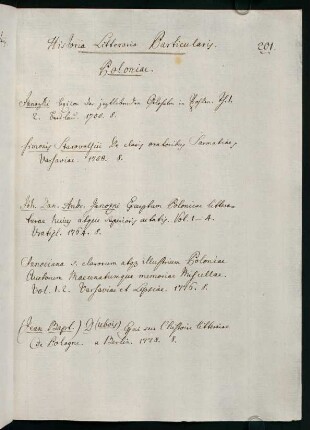 Historia Litteraria Particularis. 201
Poloniae.
Janozki Lexicon der jeztlebenden Gelehrten in Pohlen. Th.
2. Breslau. 1755. 8.
Simonis Starovolscii De claris oratoribus Sarmatiae
Varsaviae. 1758. 8.
Joh. Dan. Andr. Janozzi Excerptum Polonicae littera-
turae hujus atque superioris aetatis. Vol. 1-4.
Vratisl. 1764. 8.
Janociana s. clarorum atq. illustrium Poloniae
Auctorum Maecenatumque memoriae Miscellae.
Vol. 1. 2. Varsaviae et Lipsiae. 1776. 8.
(Jean Bapt.) D(ubois) Essai sur l'histoire litteraire
de Pologne. a Berlin. 1778. 8.